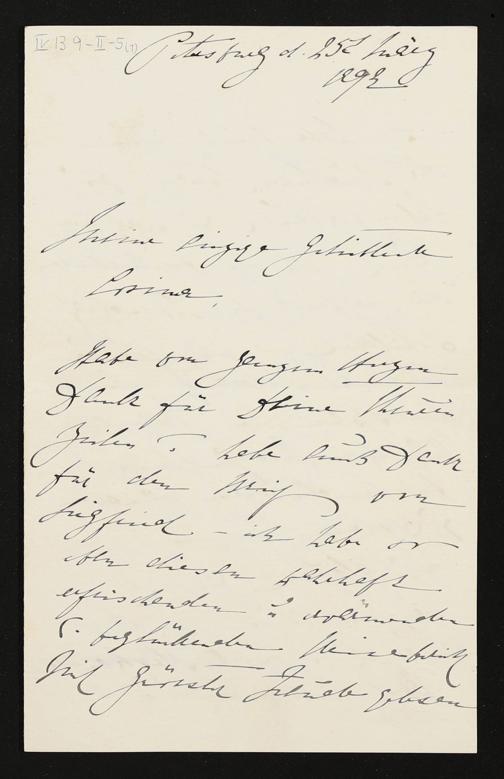 IV 13 9-II-5(1)
Petersburg d. 25t März
1892
Meine einzige Geliebteste
Cosima,
Habe von ganzem Herzen
Dank für Deine theuren
Zeilen u. habe auch Dank
für den Brief von
Siegfried - ich habe
über diesen wahrhaft
erfrischenden u. erwärmenden
u. beglückenden
mit größter Freude gelesen